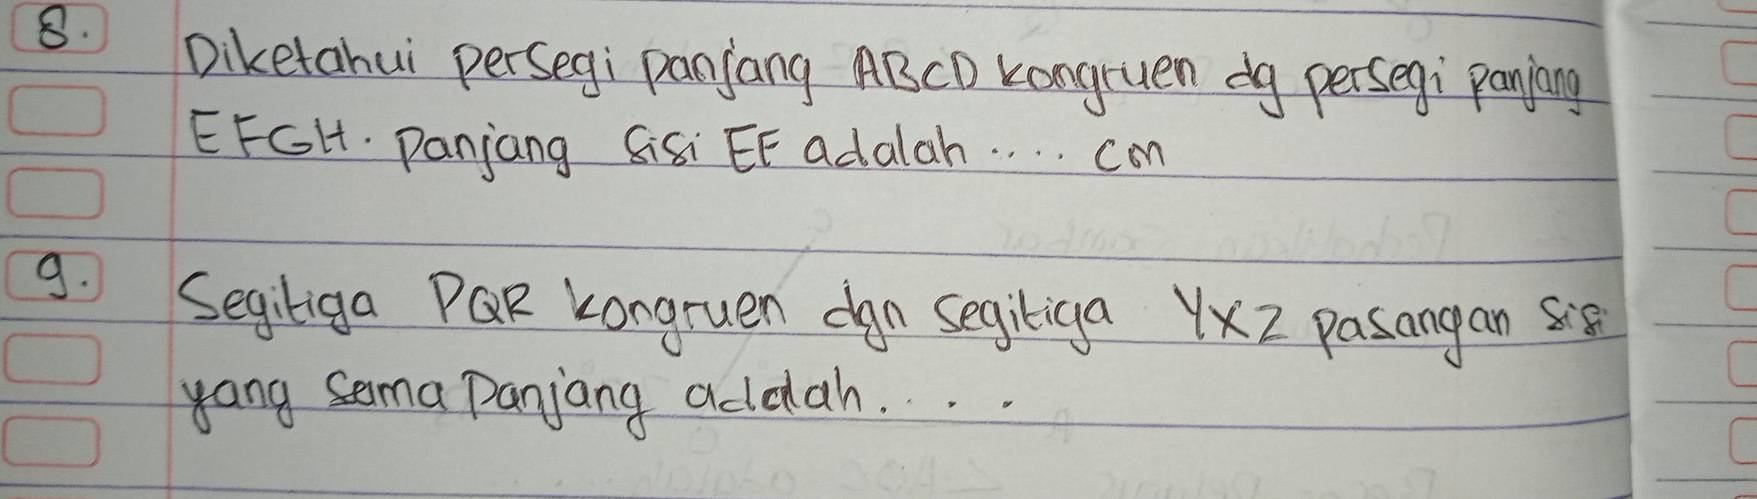 8. Diketahui persegi panjang ABCD kongruen dg persegi panjang
EFGH. Panjang sisi EF adalah .... cm
9. Segitiga PQR kongruen dgn segitiga YXZ pasangan sisi
yang sama panjang adalah....